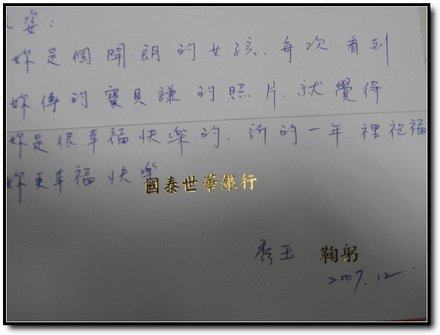 姿：
妳是個開朗的女孩．每次看到
妳傳的寶貝謙的照片．就覺得
妳是很幸福快樂的．新的一年裡祝福
妳更幸福快樂
國泰世華銀行
秀玉 鞠躬
2007.12.